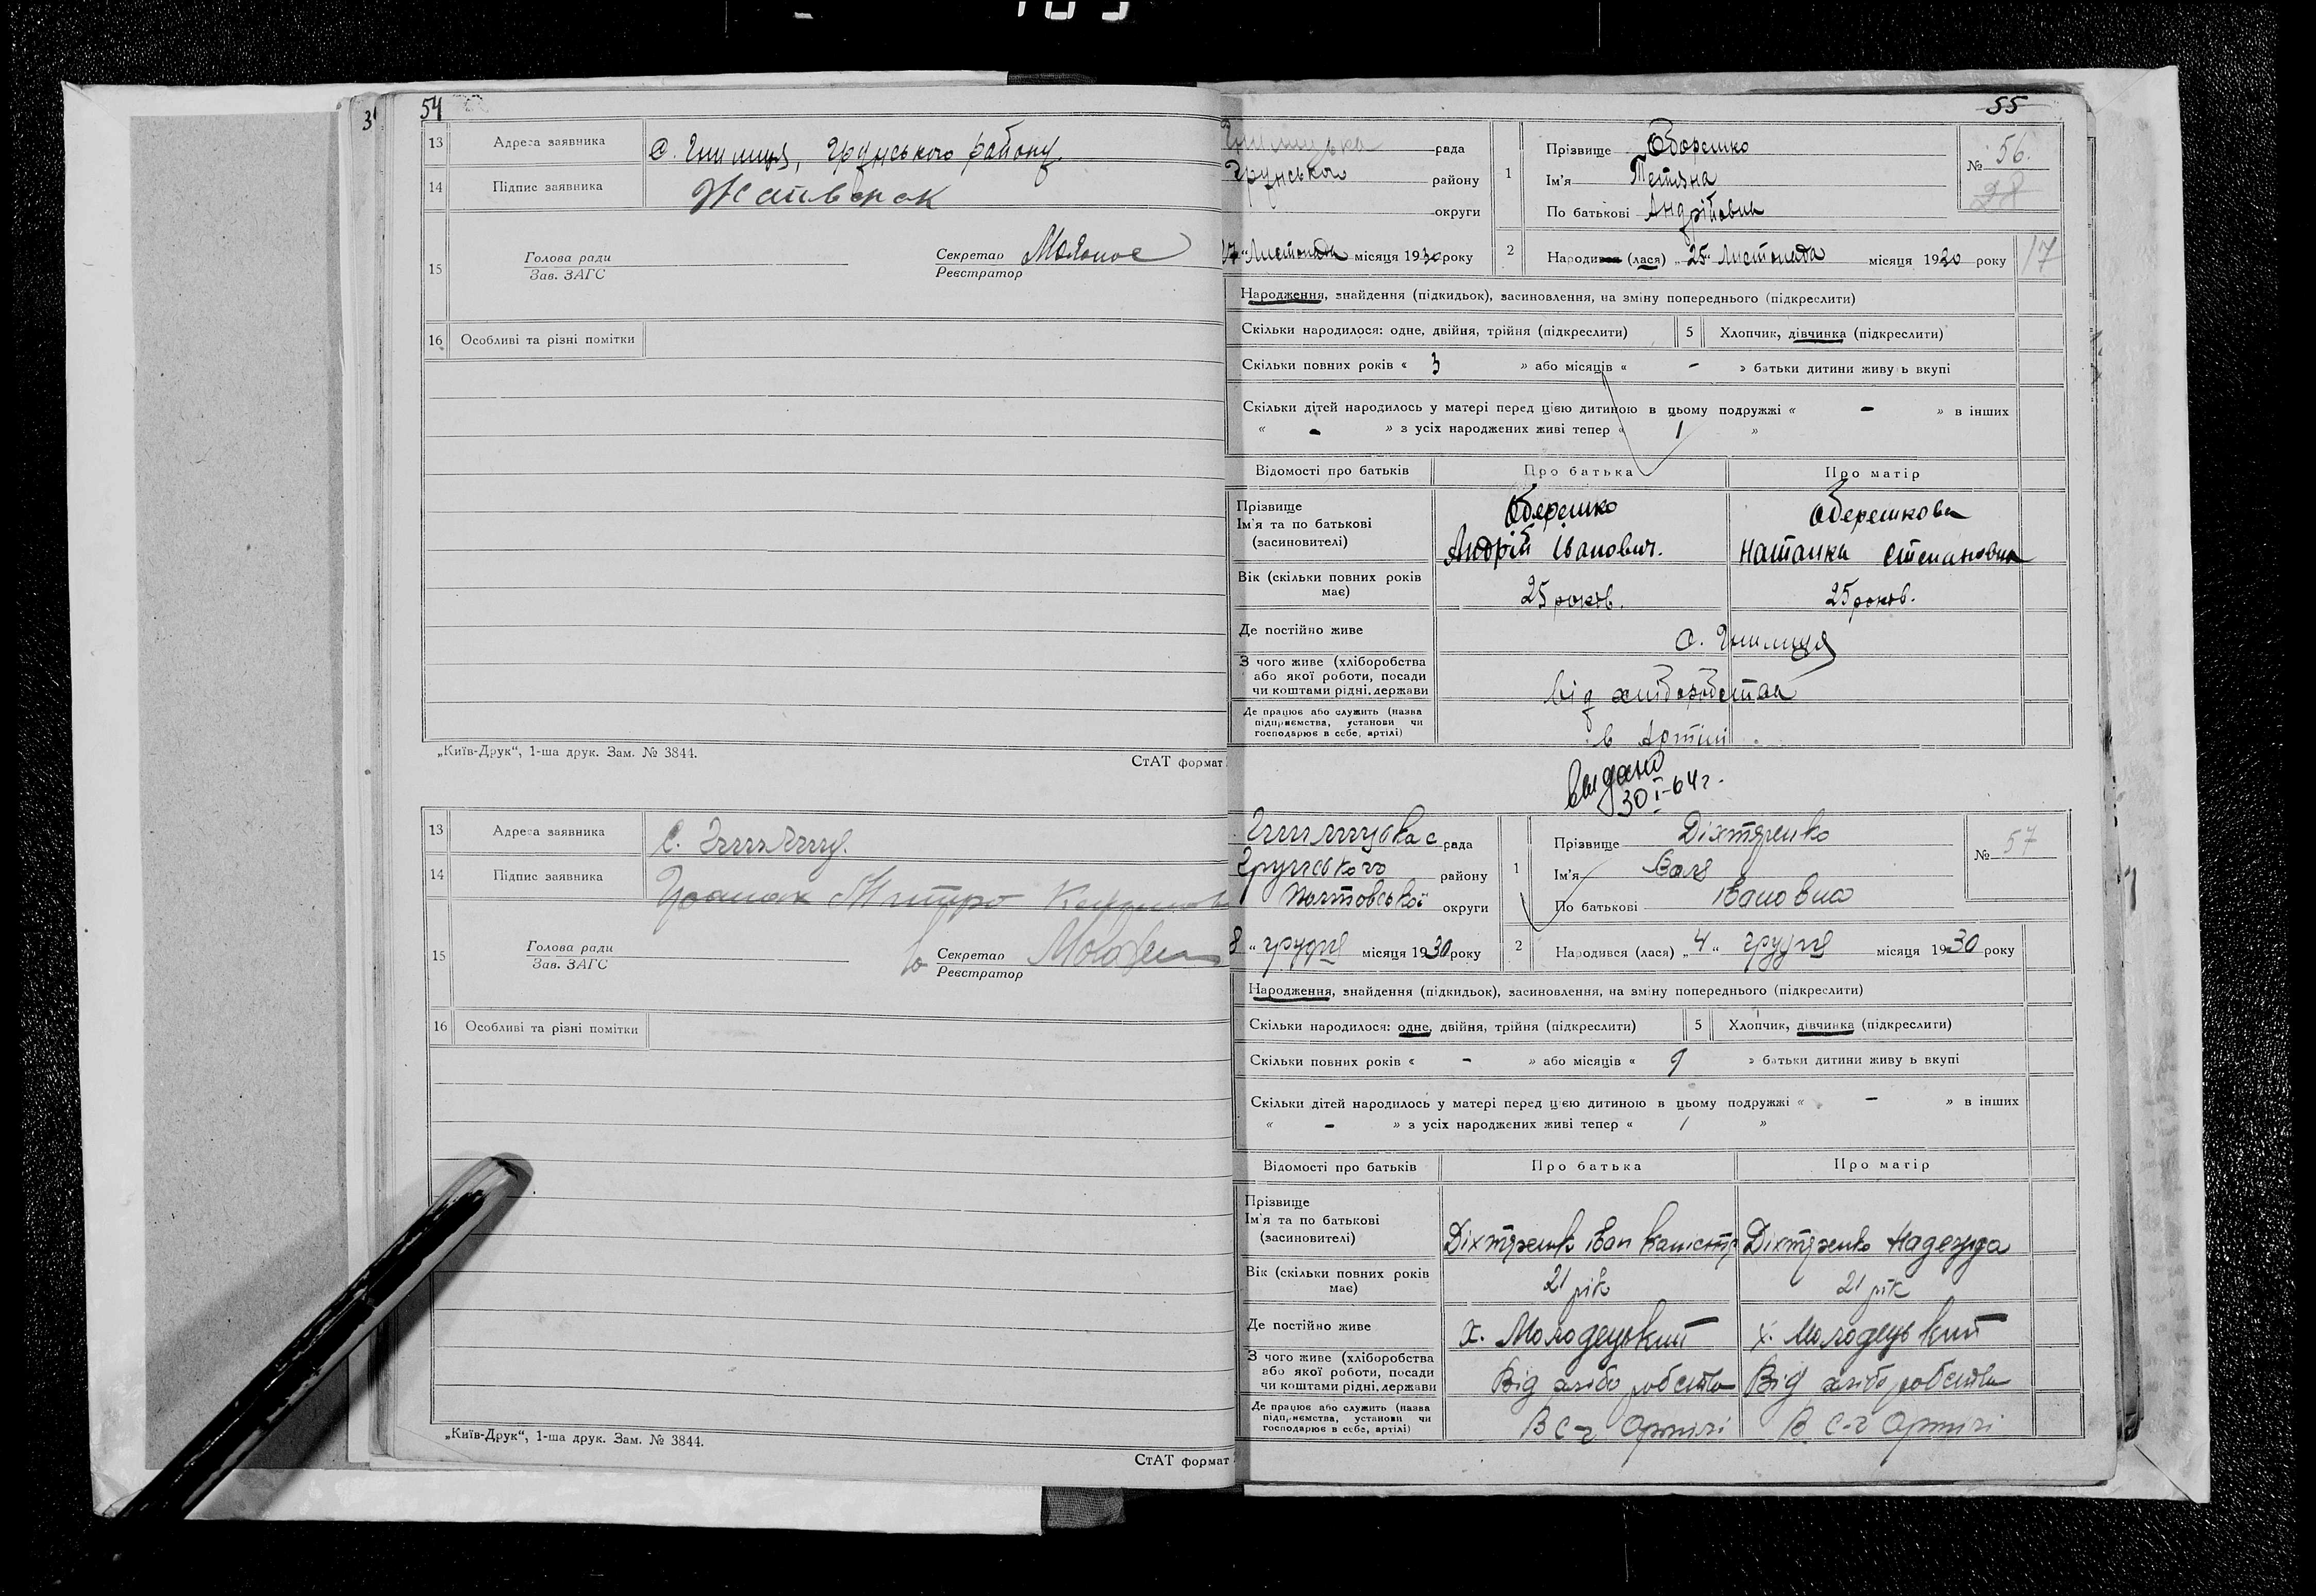 54
13 Адреса заявника с. Гнилиця, Грунського району.
14 Підпис заявника
15 Голова ради
Зав. ЗАГС
Секретар
Реєстратор
16 Особливі та різні помітки
„Київ-Друк“, 1-ша друк. Зам. № 3844.
СтАТ формат
13 Адреса заявника С. Гнилиця.
14 Підпис заявника Митро
15 Голова ради
Зав. ЗАГС
Секретар
Реєстратор
16 Особливі та різні помітки
„Київ-Друк“, 1-ша друк. Зам. № 3844.
СтАТ формат
55
Гнилицька рада
Грунського району
округи
1 Прізвище
Ім'я Тетяна
По батькові Андрійовна
№ 56.
28
„Листопада місяця 1930 року
2 Народився (лася) „25“ Листопада місяця 1930 року
17
Народження, знайдення (підкидьок), засиновлення, на зміну попереднього (підкреслити)
Скільки народилося: одне, двійня, трійня (підкреслити) 5 Хлопчик, дівчинка (підкреслити)
Скільки повних років « 3 » або місяців « - » батьки дитини живуть вкупі
Скільки дітей народилось у матері перед цією дитиною в цьому подружжі « - » в інших
« - » з усіх народжених живі тепер « 1 »
Відомості про батьків Про батька Про матір
Прізвище
Ім'я та по батькові
(засиновителі)
Оберешко Оберешкова
Андрій Іванович. Наталка Степановна
Вік (скільки повних років має) 25 років. 25 років.
Де постійно живе с. Гнилиця
З чого живе (хліборобства
або якої роботи, посади
чи коштами рідні, держави
від хліборобства
Де працює або служить (назва
підприємства, установи чи
господарює в себе, артілі)
в Артілі
выдано
30 I-64 г.
рада
Грунського району
округи
1 Прізвище Діхтяренко
Ім'я Валя
По батькові Івановна
№ 57
8 „ грудня місяця 1930 року
2 Народився (лася) „4“ грудня місяця 1930 року
Народження, знайдення (підкидьок), засиновлення, на зміну попереднього (підкреслити)
Скільки народилося: одне, двійня, трійня (підкреслити) 5 Хлопчик, дівчинка (підкреслити)
Скільки повних років « - » або місяців « 9 » батьки дитини живуть вкупі
Скільки дітей народилось у матері перед цією дитиною в цьому подружжі « - » в інших
« - » з усіх народжених живі тепер « 1 »
Відомості про батьків Про батька Про матір
Прізвище
Ім'я та по батькові
(засиновителі)
Діхтяренко Іван Діхтяренко Надежда
Вік (скільки повних років має) 21 рік 21 рік
Де постійно живе х. Молодецький х. Молодецький
З чого живе (хліборобства
або якої роботи, посади
чи коштами рідні, держави
Від хліборобства Від хліборобства
Де працює або служить (назва
підприємства, установи чи
господарює в себе, артілі)
В С-г Артілі В С-г Артілі